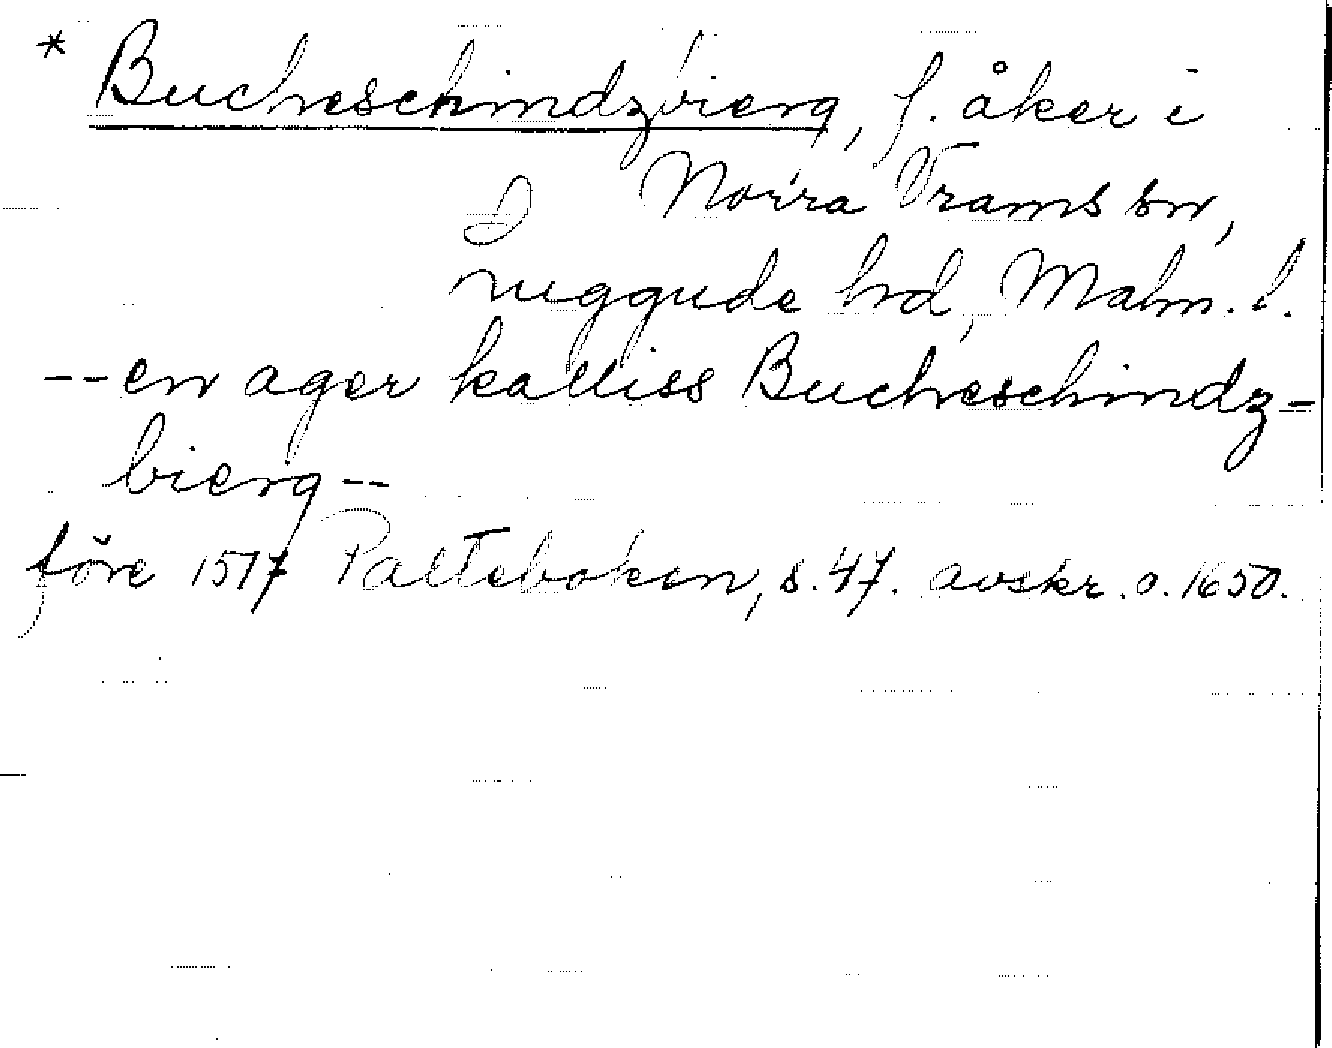 * Bucheschindzbierg, f. åker i
Norra Vrams sn,
Luggude hd, Malm. l.
--en ager kalliss Bucheschindz-
bierg--
före 1517 Palteboken, s. 47. avskr. o. 1650.